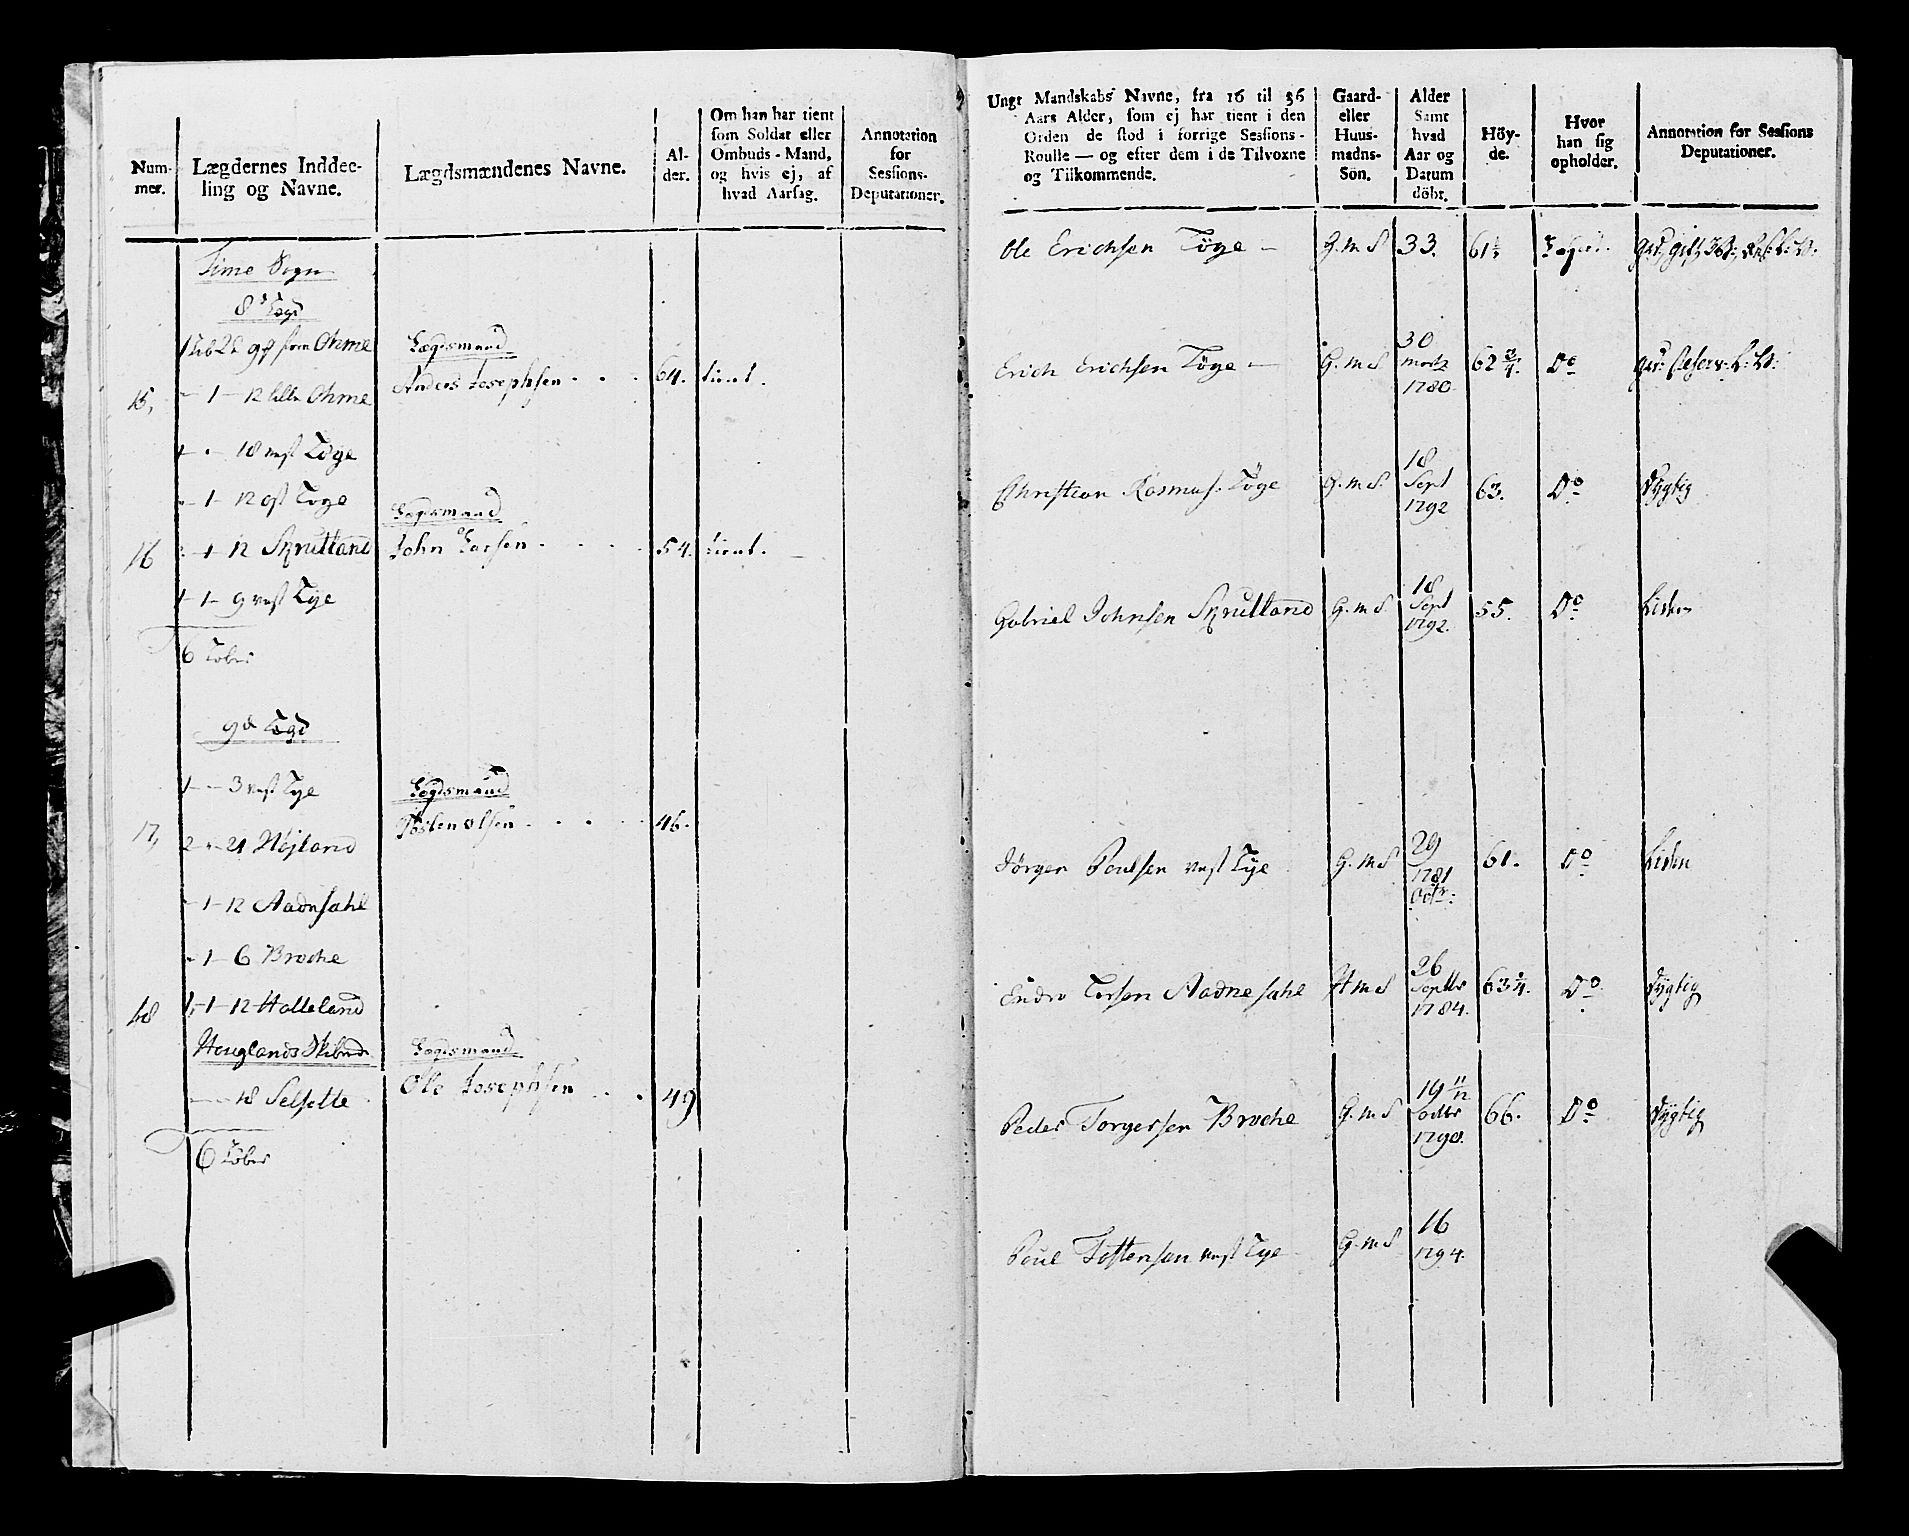 Num-
mer.
Lægdernes Inddee-
ling og Navne.
Lægdsmændenes Navne.
Al-
der.
Om han har tient
som Soldat eller
Ombuds - Mand,
og hvis ej, af
hvad Aarsag.
Annotation
for
Sessions-
Deputationer.
Time Sogn
8de Lægd
Ohme
Lægdsmand
15, 1 12 lille Ohme Anders Josephsen 64. tient.
18 vest Lÿge
1 12 ost Lÿge
Lægdsmand
16 1 12 Skrutland John Larsen 54. tient.
1 1 9 vest Lye
6 Lober
9de Lægd
1 3 vest Lye Lægdsmand
17, 2 21 Højland Tosten Olsen 46.
1 12 Aadnesahl
1 6 Broche
18 1 1 12 Halleland
Houglands Skibrede Lægdsmand
18 Selsette Ole Josephsen 49
6 Lober
Ungt Mandskabs Navne, fra 16 til 36
Aars Alder, som ej har tient i den
Orden de stod i forrige Sessions-
Roulle — og efter dem i de Tilvoxne
og Tilkommende.
Gaard-
eller
Huus-
madns-
Sön.
Alder
Samt
hvad
Aar og
Datum
döbt.
Höy-
de.
Hvor
han sig
opholder.
Annotation for Sessions
Deputationer.
Ole Erichsen Lÿge — G. m S 33. 61½
30
Erich Erichsen Lÿge — G. m S 62¾. Do
1780
18
Christian Rasmus. Lÿge G. m S. Sept 63. Do Dygtig
1792
18
Gabriel Johnsen Skrutland G. m S Sept 55. Do Liden
1792.
29
Jørgen Poulsen vest Lye G. m S 1781 61. Do Liden
Octr:
26
Endre Aadnesahl H m S Septbr 63¼. Do Dygtig
1784.
19
Peder Torgersen Broche G. m S 66. Do Dygtig
1790.
16
Poul Tostensen vest Lye G. m S 1794.